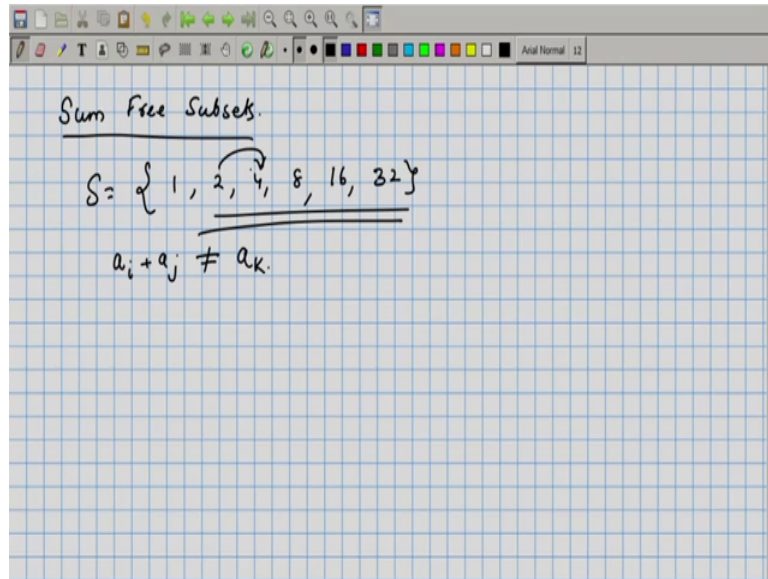 Arial Normal 12
Sum Free Subsets.
S = { 1, 2, 4, 8, 16, 32 }
a_i + a_j ≠ a_k.